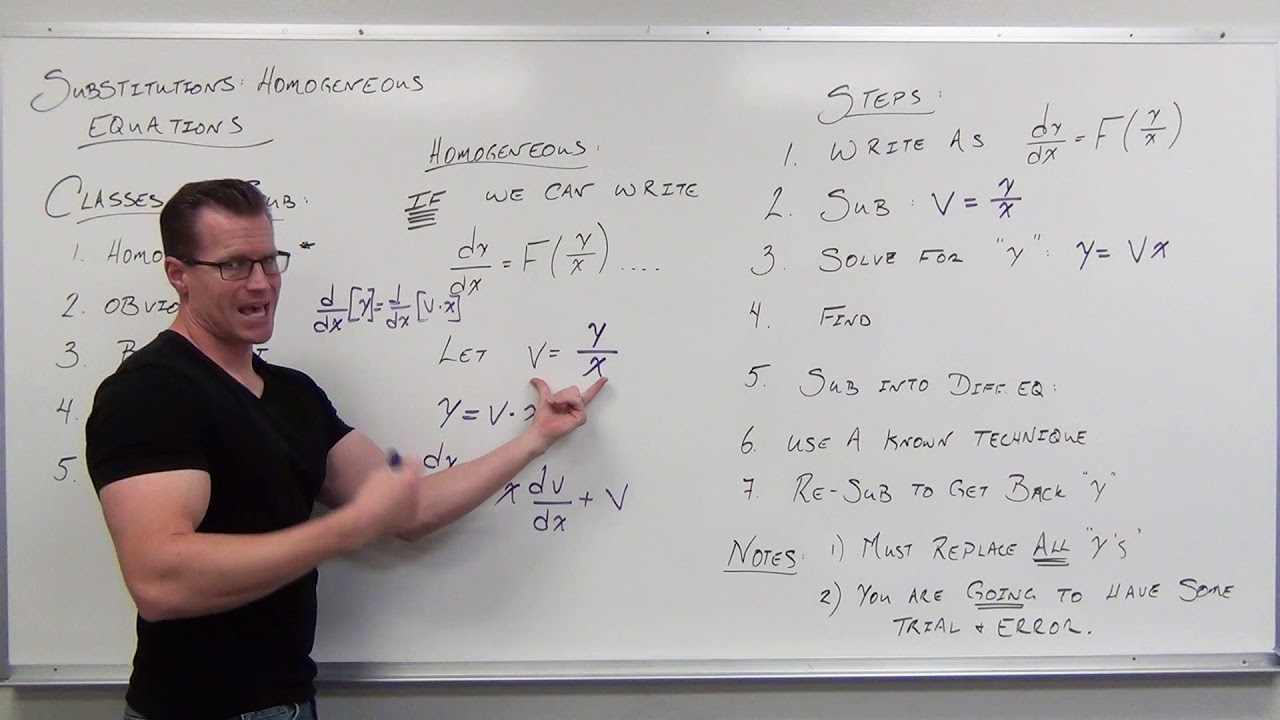 SUBSTITUTIONS: HOMOGENEOUS
EQUATIONS
CLASSES UB:
1. HOMO *
2. OBVIO
3. B
4.
5.
HOMOGENEOUS:
IF WE CAN WRITE
dy/dx = F(y/x) ....
d/dx [y] = d/dx [V·x]
LET V = y/x
y = V·x
dy
x dv/dx + V
STEPS:
1. WRITE AS dy/dx = F(y/x)
2. SUB: V = y/x
3. SOLVE FOR "y": y = Vx
4. FIND
5. SUB INTO DIFF. EQ:
6. USE A KNOWN TECHNIQUE
7. RE-SUB TO GET BACK "y"
NOTES: 1) MUST REPLACE ALL "y's"
2) YOU ARE GOING TO HAVE SOME
TRIAL & ERROR.